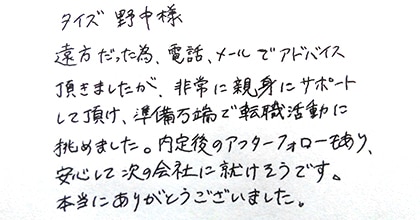 タイズ 野中様
遠方だった為、電話、メールでアドバイス
頂きましたが、非常に親身にサポート
して頂け、準備万端で転職活動に
挑めました。内定後のアフターフォローもあり、
安心して次の会社に就けそうです。
本当にありがとうございました。